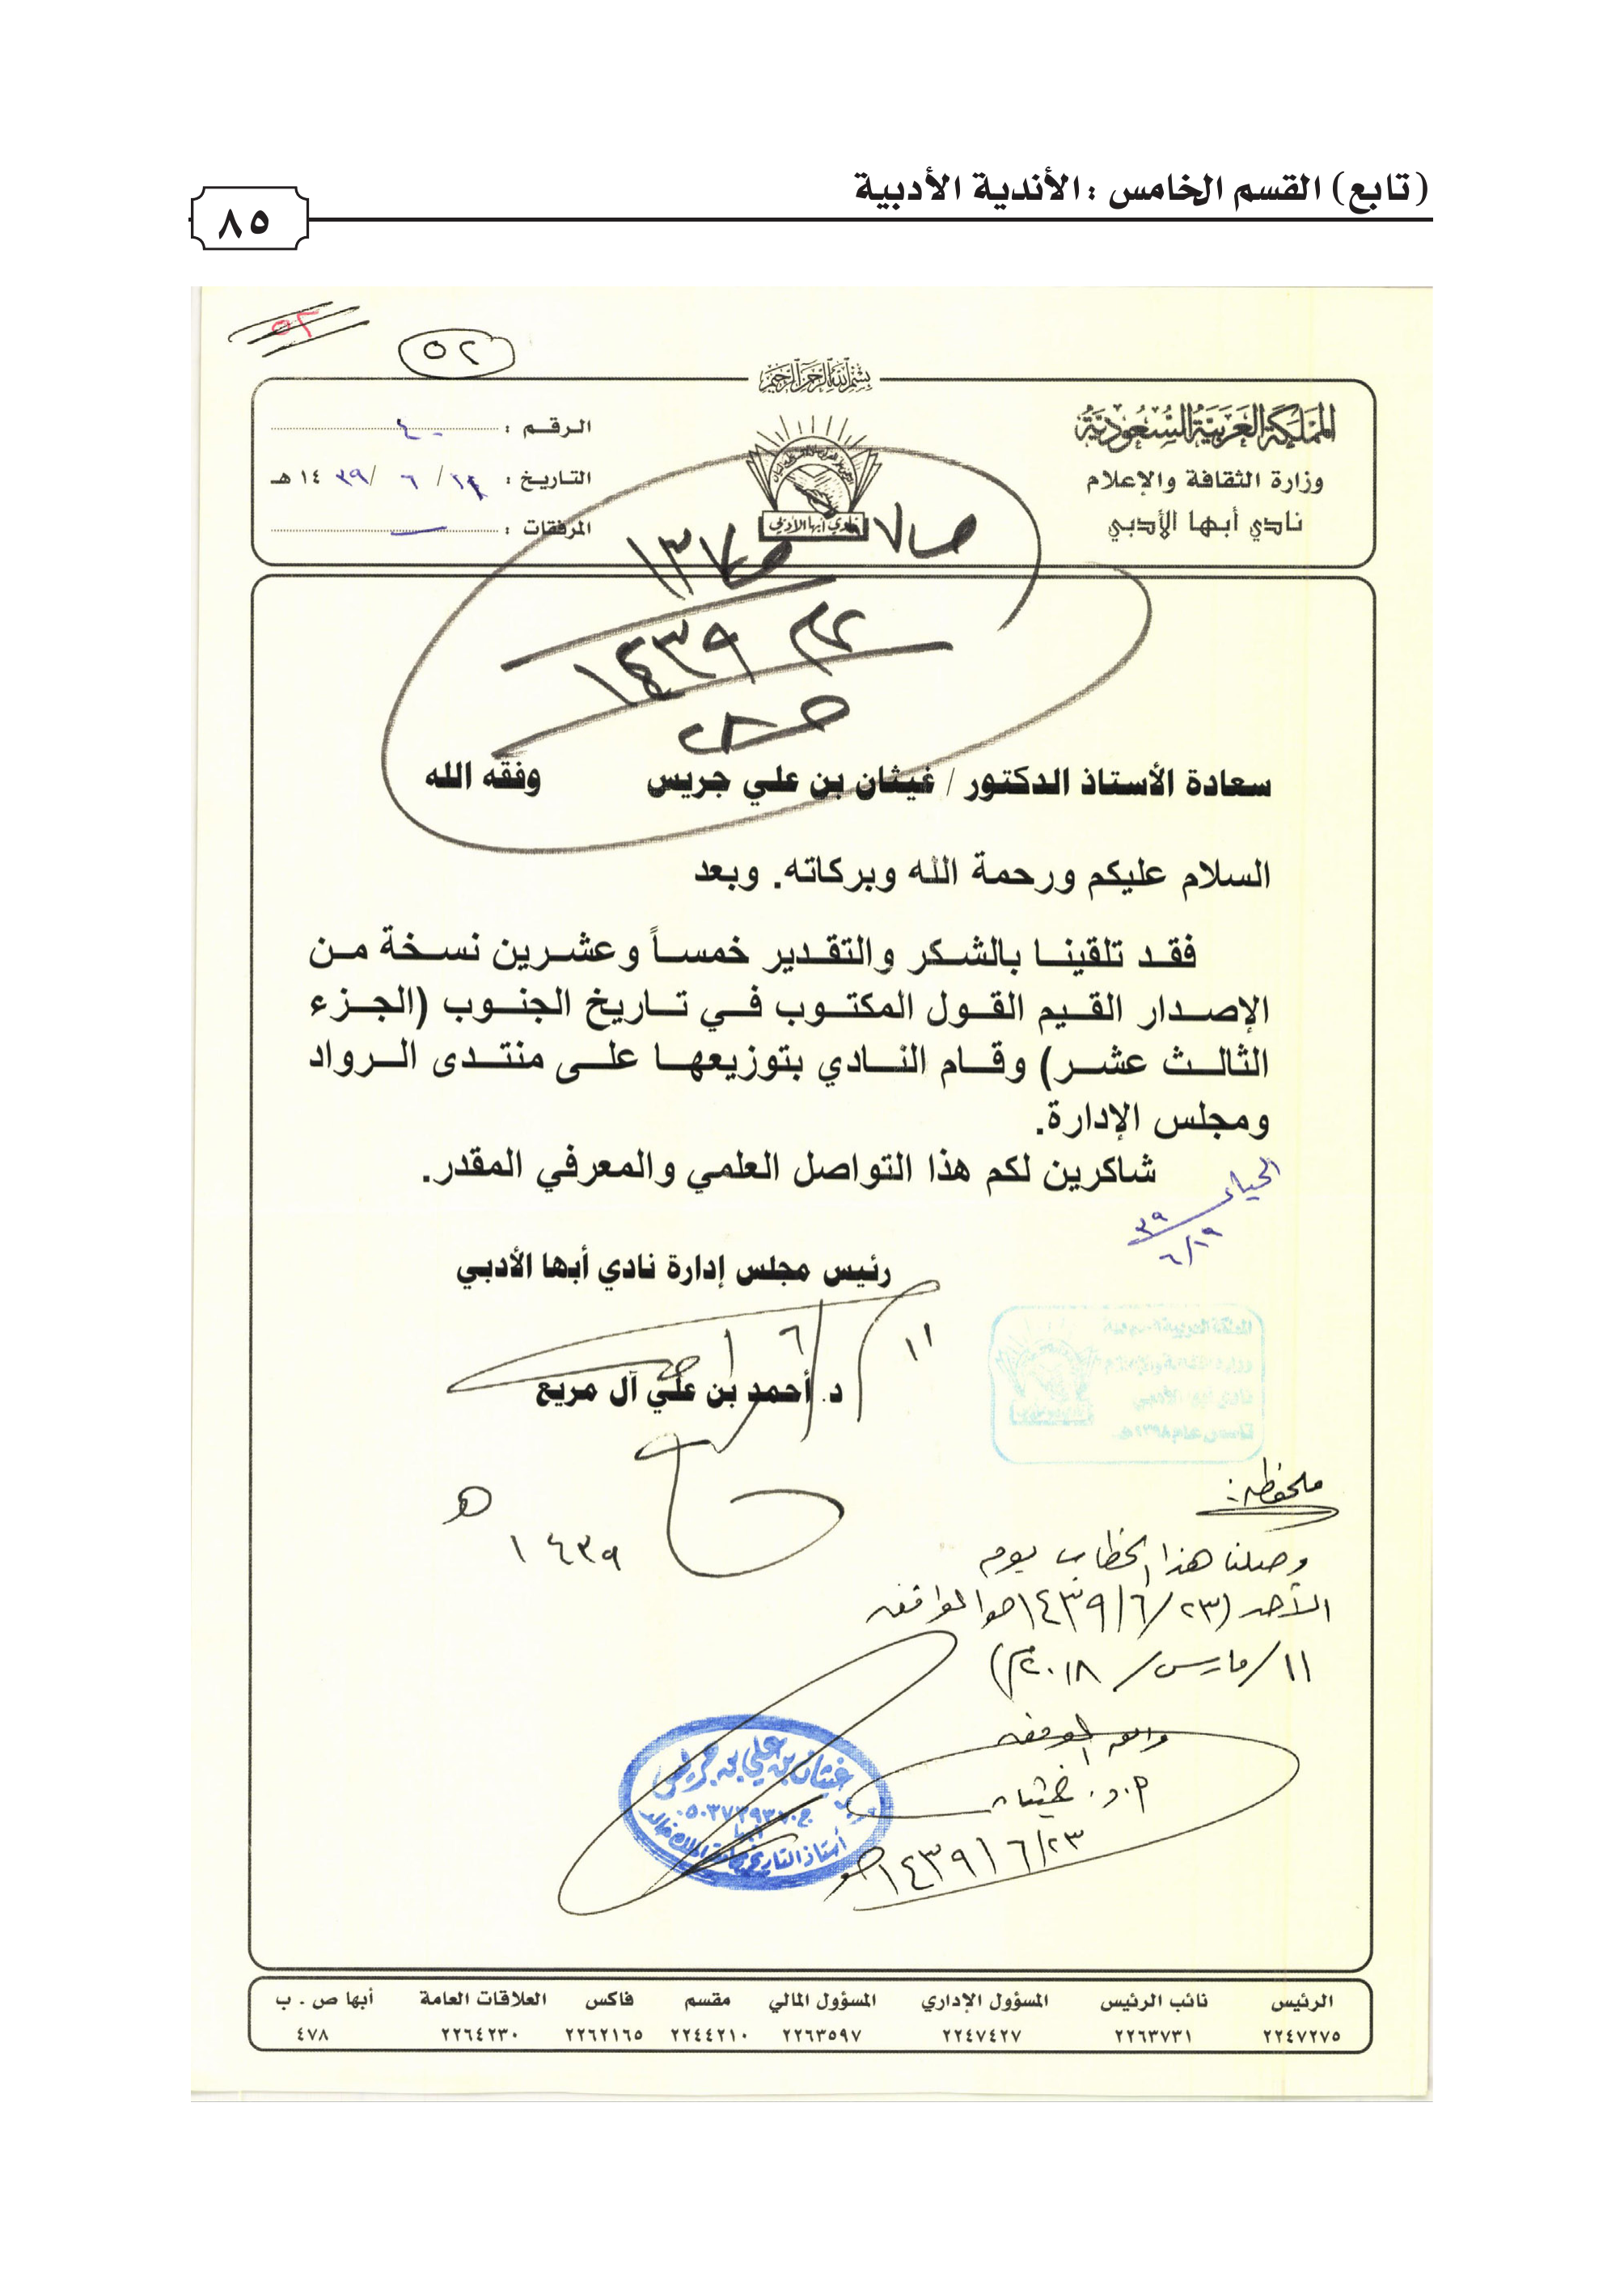 (تابع) القسم الخامس : الأندية الأدبية
٨٥
٥٢
٥٢
بسم الله الرحمن الرحيم
المملكة العربية السعودية
وزارة الثقافة والإعلام
نادي أبها الأدبي
نادي أبها الأدبي
الرقم : ٤٠
التاريخ : / ٦ / ٣٩ ١٤ هـ
المرفقات :
١٤٣٩
سعادة الأستاذ الدكتور / غيثان بن علي جريس وفقه الله
السلام عليكم ورحمة الله وبركاته. وبعد
فقد تلقينا بالشكر والتقدير خمساً وعشرين نسخة من
الإصدار القيم القول المكتوب في تاريخ الجنوب (الجزء
الثالث عشر) وقام النادي بتوزيعها على منتدى الرواد
ومجلس الإدارة.
شاكرين لكم هذا التواصل العلمي والمعرفي المقدر.
٣٩
٦/١٩
رئيس مجلس إدارة نادي أبها الأدبي
١١ / ٦
د. أحمد بن علي آل مريع
١٤٣٩ هـ
ملحوظة :
وصلنا هذا الخطاب يوم
الأحد (٢٣/٦/١٤٣٩هـ الموافق
١١/مارس/٢٠١٨م)
والله الموفق
أ.د. غيثان
٢٣/٦/١٤٣٩هـ
غيثان بن علي بن جريس
أبها
أستاذ التاريخ بجامعة الملك خالد
الرئيس نائب الرئيس المسؤول الإداري المسؤول المالي مقسم فاكس العلاقات العامة أبها ص . ب
٢٢٤٧٢٧٥ ٢٢٦٣٧٣١ ٢٢٤٧٤٢٧ ٢٢٦٣٥٩٧ ٢٢٤٤٢١٠ ٢٢٦٢١٦٥ ٢٢٦٤٢٣٠ ٤٧٨